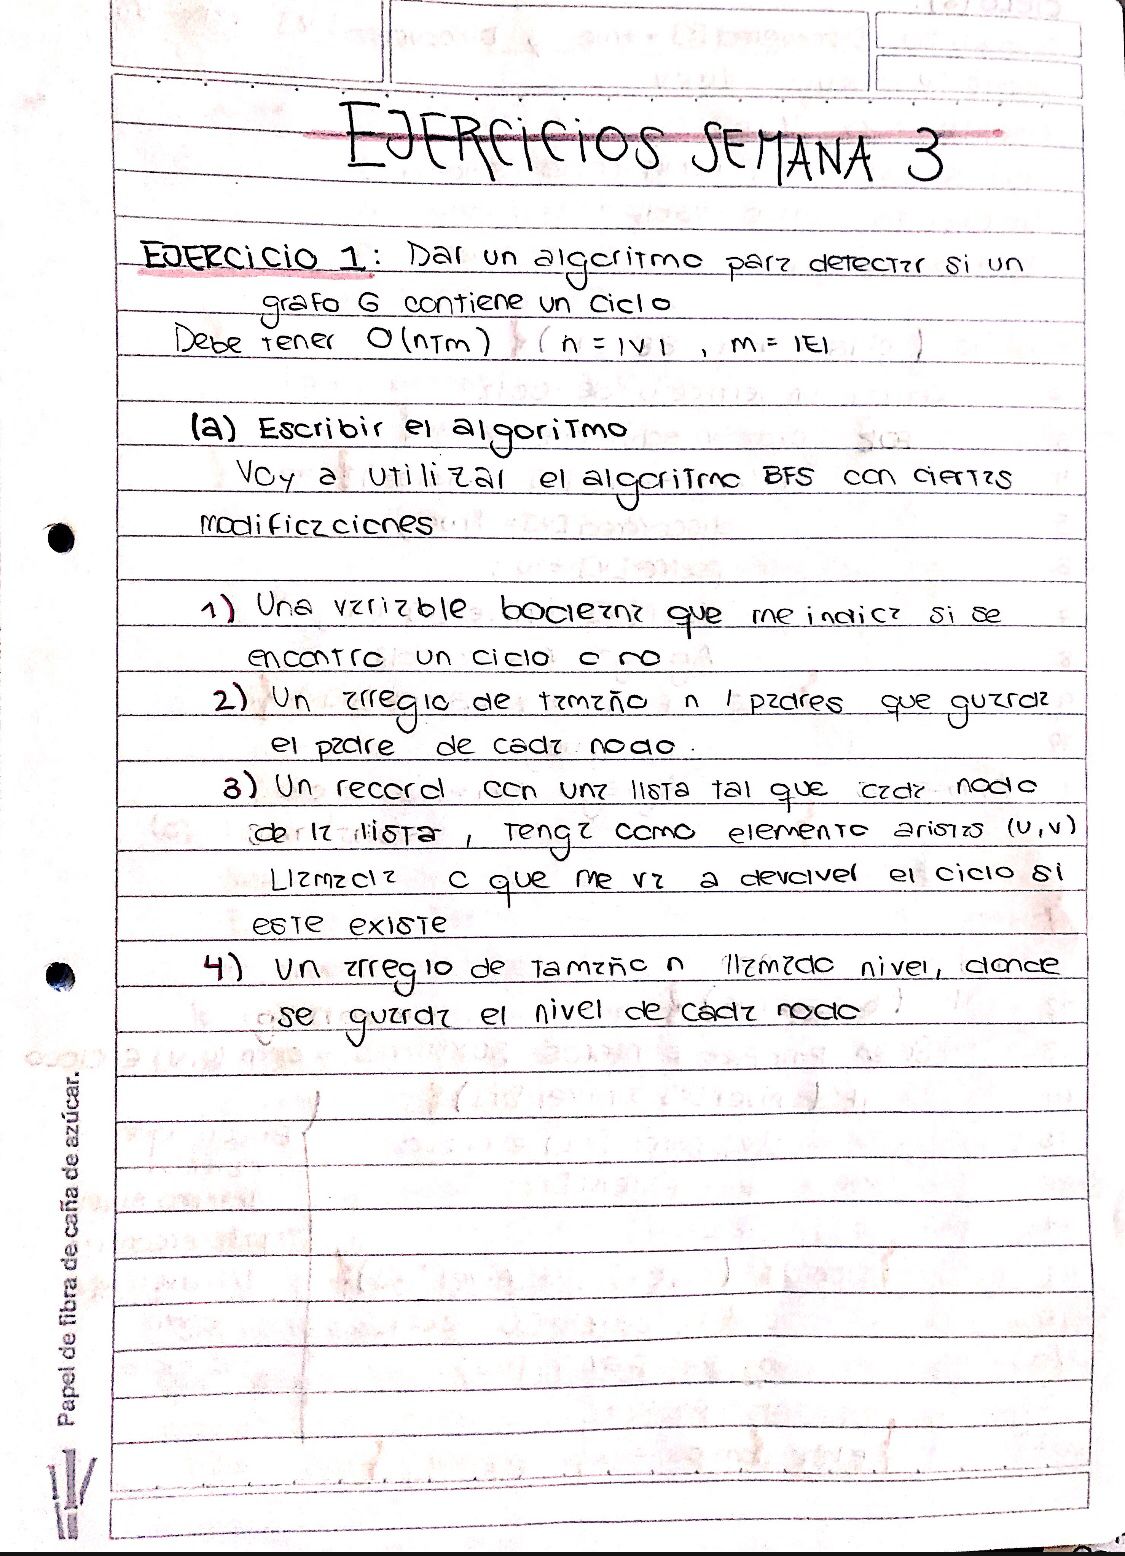 EJERCICIOS SEMANA 3
EJERCICIO 1: Dar un algoritmo para detectar si un
grafo G contiene un ciclo
Debe tener O(n+m) (n = |V|, m = |E| )
(a) Escribir el algoritmo
Voy a utilizar el algoritmo BFS con ciertas
modificaciones
1) Una variable booleana que me indica si se
encontro un ciclo o no
2) Un arreglo de tamaño n / padres que guarda
el padre de cada nodo.
3) Un record con una lista tal que cada nodo
de la lista, tenga como elemento aristas (u,v)
Llamada C que me va a devolver el ciclo si
este existe
4) Un arreglo de tamaño n llamado nivel, donde
se guarda el nivel de cada nodo
Papel de fibra de caña de azúcar.